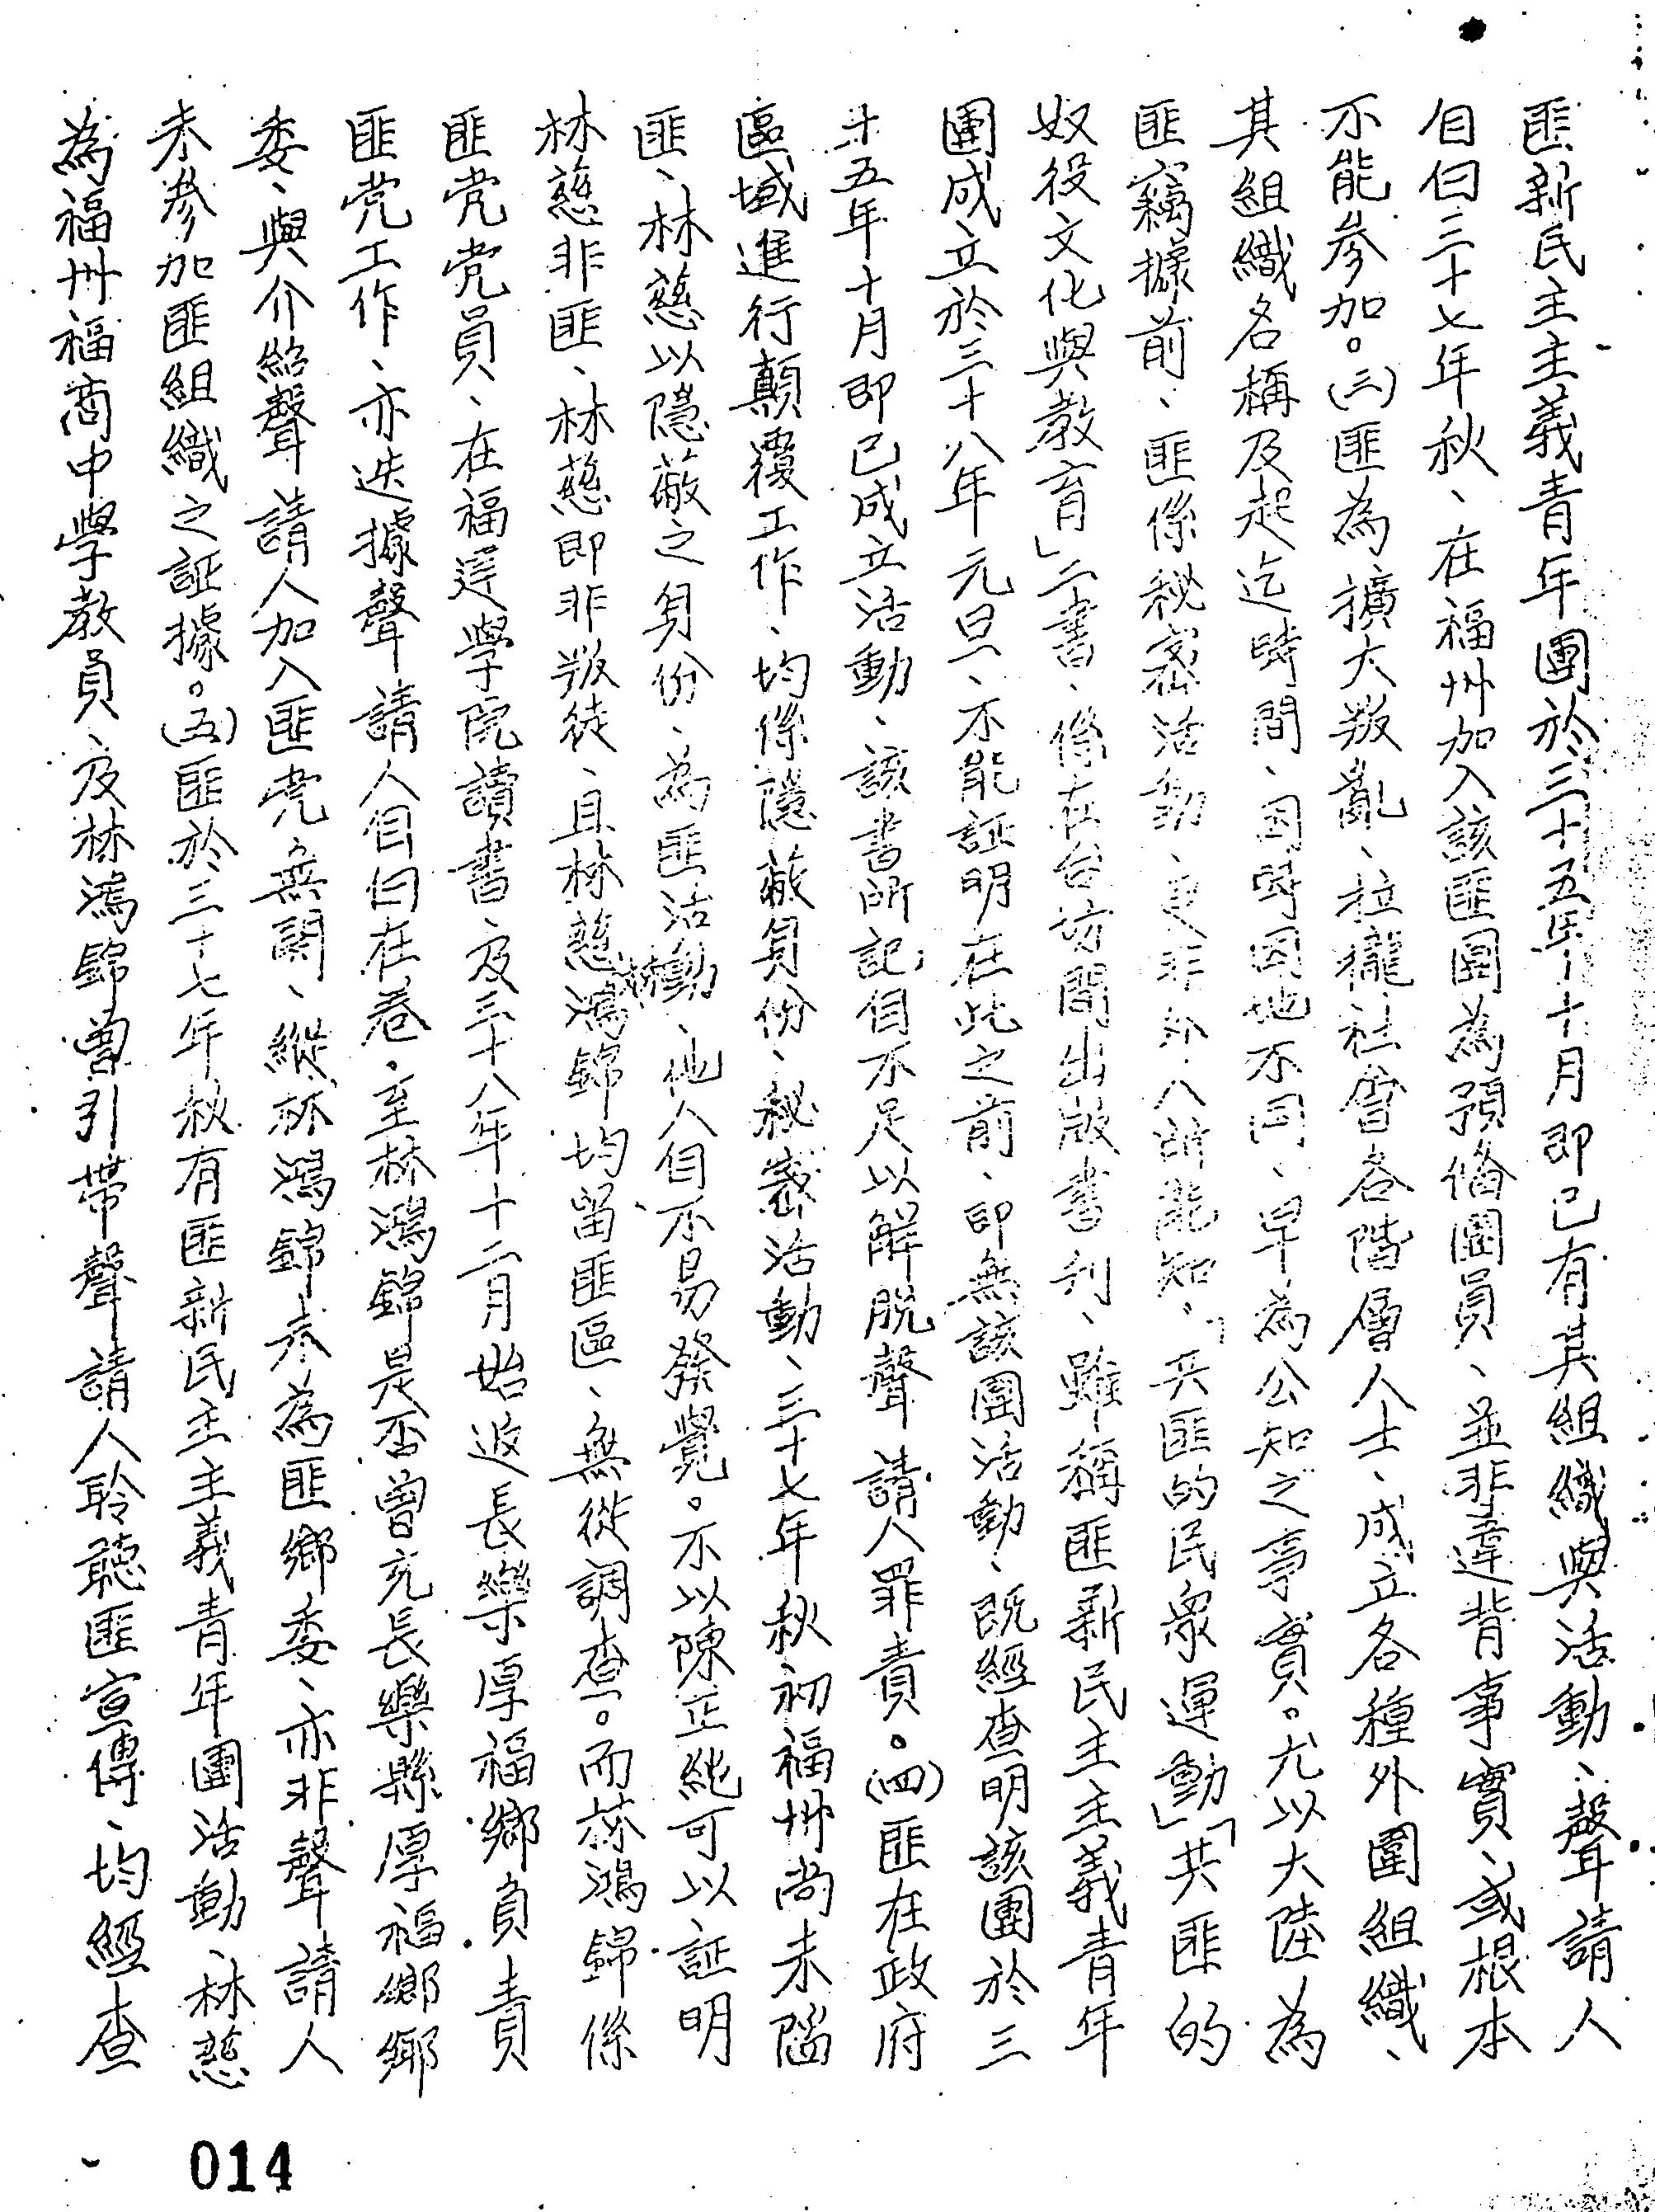 匪新民主主義青年團於三十五年十月即已有其組織與活動、聲請人
自白三十七年秋、在福州加入該匪團為預備團員、並非違背事實、或根本
不能參加。(三)匪為擴大叛亂、拉攏社會各階層人士、成立各種外圍組織、
其組織名稱及起迄時間、因時因地不同、早為公知之事實。尤以大陸為
匪竊據前、匪係秘密活動、更非外人所能知、「共匪的民眾運動」「共匪的
奴役文化與教育」二書、係在台坊間出版書刊、雖稱匪新民主主義青年
團成立於三十八年元旦、不能証明在此之前、即無該團活動、既經查明該團於三
十五年十月即已成立活動、該書所記自不足以解脫聲請人罪責。(四)匪在政府
區域進行顛覆工作、均係隱蔽身份、秘密活動、三十七年秋初福州尚未陷
匪、林慈以隱蔽之身份、為匪活動、他人自不易發覺。不以陳正純可以証明
林慈非匪、林慈即非叛徒、且林慈林鴻錦均留匪區、無從調查。而林鴻錦係
匪党党員、在福建學院讀書、及三十八年十二月始返長樂厚福鄉負責
匪党工作、亦迭據聲請人自白在卷。至林鴻錦是否曾充長樂縣厚福鄉鄉
委、與介紹聲請人加入匪党無關、縱林鴻錦未為匪鄉委、亦非聲請人
未參加匪組織之証據。(五)匪於三十七年秋有匪新民主主義青年團活動、林慈
為福州福商中學教員、及林鴻錦曾引帶聲請人聆聽匪宣傳、均經查
014